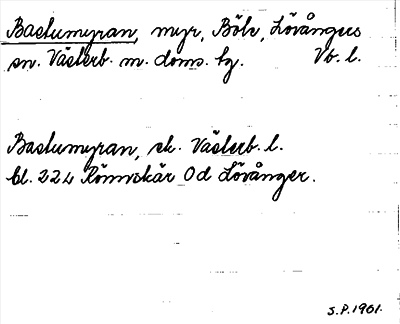 Bastumyran, myr, Böle, Lövångers
sn. Västerb. m. doms. hg. Vb. l.
Bastumyran, ek. Västerb. l.
bl. 224 Rönnskär Od Lövånger.
S.P. 1961.